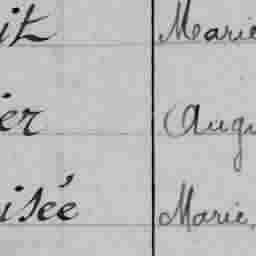 it Marie
er Augu
isée Marie,